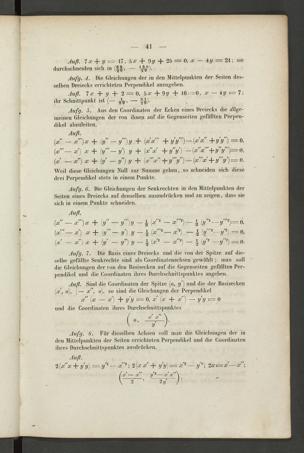 — 41 —
Aufl. 7x + y = 17, 5x + 9y + 25 = 0, x — 4y = 24; sie
durchschneiden sich in
Aufg. 4. Die Gleichungen der in den Mittelpunkten der Seiten des-
selben Dreiecks errichteten Perpendikel anzugeben.
Aufl. 7x + y + 2 = 0, 5x + 9y + 16 = 0, x — 4y = 7;
ihr Schnittpunkt ist
Aufg. 5. Aus den Coordinaten der Ecken eines Dreiecks die allge-
meinen Gleichungen der von ihnen auf die Gegenseiten gefällten Perpen-
dikel abzuleiten.
Aufl.
(x'' — x''')x + (y'' — y''')y + (x'x''' + y'y''')—(x'x'' + y'y'') = 0.
(x''' — x')x + (y''' — y')y + (x''x' + y''y')—(x''x''' + y''y''') = 0.
(x' — x'')x + (y' — y'')y + (x'''x'' + y'''y'')—(x'''x' + y'''y') = 0.
Weil diese Gleichungen Null zur Summe geben, so schneiden sich diese
drei Perpendikel stets in einem Punkte.
Aufg. 6. Die Gleichungen der Senkrechten in den Mittelpunkten der
Seiten eines Dreiecks auf denselben auszudrücken und zu zeigen, dass sie
sich in einem Punkte schneiden.
Aufl.
(x'' — x''')x + (y'' — y''')y — ½ (x''² — x'''²)— ½ (y''² — y'''²) = 0.
(x''' — x')x + (y''' — y')y — ½ (x'''² — x'²)— ½ (y'''² — y'²) = 0.
(x' — x'')x + (y' — y'')y — ½ (x'² — x''²)— ½ (y'² — y''²) = 0.
Aufg. 7. Die Basis eines Dreiecks und die von der Spitze auf die-
selbe gefällte Senkrechte sind als Coordinatenachsen gewählt; man soll
die Gleichungen der von den Basisecken auf die Gegenseiten gefällten Per-
pendikel und die Coordinaten ihres Durchschnittspunktes angeben.
Aufl. Sind die Coordinaten der Spitze (o, y') und die der Basisecken
(x', o), (— x'', o), so sind die Gleichungen der Perpendikel
x'' (x — x') + y'y = 0, x' (x + x'') — y'y = 0
und die Coordinaten ihres Durchschnittspunktes
(o, x'x''/y').
Aufg. 8. Für dieselben Achsen soll man die Gleichungen der in
den Mittelpunkten der Seiten errichteten Perpendikel und die Coordinaten
ihres Durchschnittspunktes ausdrücken.
Aufl.
2(x''x + y'y) = y'² — x''²; 2(x'x — y'y) = x'² — y'²; 2x = x' — x'';
((x' — x'')/2, (y'² — x'x'')/2y').